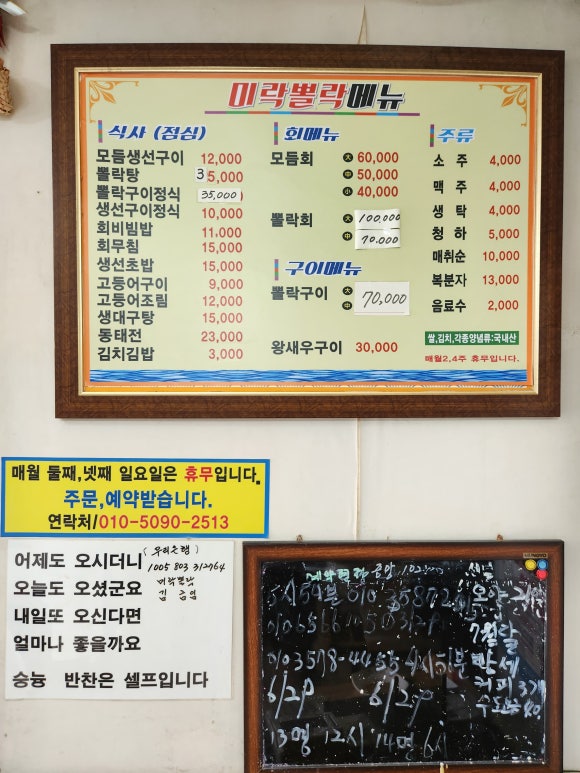 미락뽈락메뉴
식사 (점심)
모듬생선구이 12,000
뽈락탕 35,000
뽈락구이정식 35,000
생선구이정식 10,000
회비빔밥 11,000
회무침 15,000
생선초밥 15,000
고등어구이 9,000
고등어조림 12,000
생대구탕 15,000
동태전 23,000
김치김밥 3,000
회메뉴
모듬회 大 60,000
中 50,000
小 40,000
뽈락회 大 100,000
中 70.000
구이메뉴
뽈락구이 大 中 70,000
왕새우구이 30,000
주류
소 주 4,000
맥 주 4,000
생 탁 4,000
청 하 5,000
매취순 10,000
복분자 13,000
음료수 2,000
쌀,김치,각종양념류:국내산
매월2,4주 휴무입니다.
매월 둘째,넷째 일요일은 휴무입니다.
주문,예약받습니다.
연락처/010-5090-2513
어제도 오시더니
(우리은행)
1005 803 312764
오늘도 오셨군요
미락뽈락
내일또 오신다면
얼마나 좋을까요
숭늉 반찬은 셀프입니다
5시54분 010
7월
반세
커피 3개
6/2P 6/2P
13명 12시 14명 6시